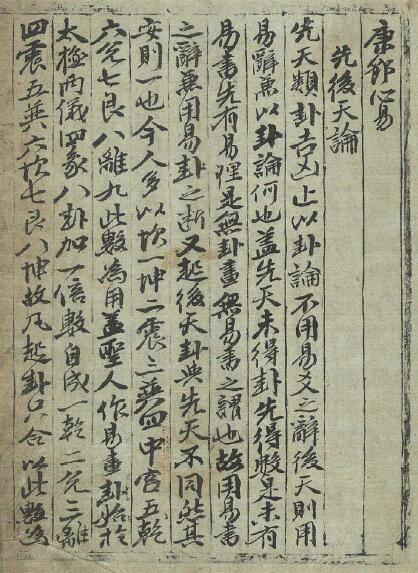 康節心易
先後天論
先天類卦吉凶止以卦論不用易爻之辭後天則用
易辭兼以卦論何也盖先天未得卦先得數是未有
易書先有易理是無卦畫無易書之謂也故用易書
之辭兼用易卦之断又起後天卦與先天不同然其
安則一也今人多以坎一坤二震三巽四中宮五乾
六兊七艮八離九此數為用盖聖人作易畫卦始於
太極兩儀四象八卦加一倍數自成一乾二兊三離
四震五巽六坎七艮八坤故凡起卦只合以此數為